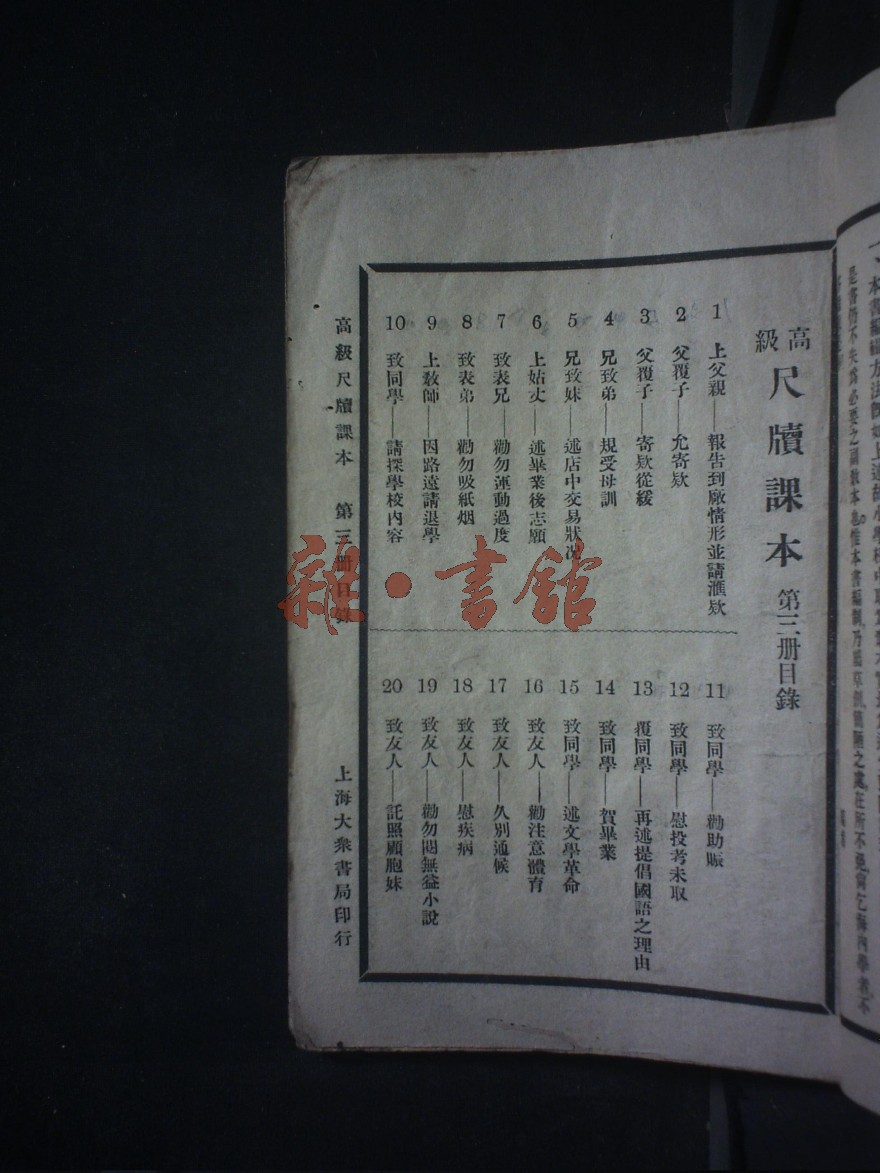 高級尺牘課本 第三册目錄
1 上父親——報告到廠情形並請滙欵
2 父覆子——允寄欵
3 父覆子——寄欵從緩
4 兄致弟——規受母訓
5 兄致妹——述店中交易狀况
6 上姑丈——述畢業後志願
7 致表兄——勸勿運動過度
8 致表弟——勸勿吸紙烟
9 上敎師——因路遠請退學
10 致同學——請探學校內容
11 致同學——勸助賑
12 致同學——慰投考未取
13 覆同學——再述提倡國語之理由
14 致同學——賀畢業
15 致同學——述文學革命
16 致友人——勸注意體育
17 致友人——久別通候
18 致友人——慰疾病
19 致友人——勸勿閱無益小說
20 致友人——託照顧胞妹
高級尺牘課本 第三册目錄
上海大衆書局印行
雜·書館